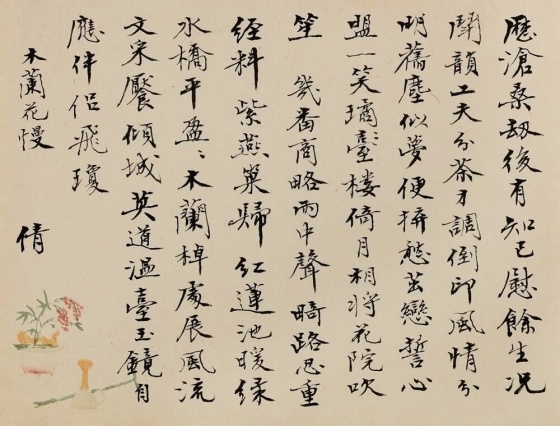 歷滄桑劫後有知己慰餘生況
鬥韻工夫分茶才調倒卬風情分
明舊塵似夢便拚愁茧戀誓心
盟一笑璚臺樓倚月相將花院吹
笙　幾番商略雨中聲晴路忍重
經料紫燕巢歸紅蓮池暖綠
水橋平盈〻木蘭棹處展風流
文采饜傾城莫道溫臺玉鏡自
應伴侶飛瓊
木蘭花慢
倩